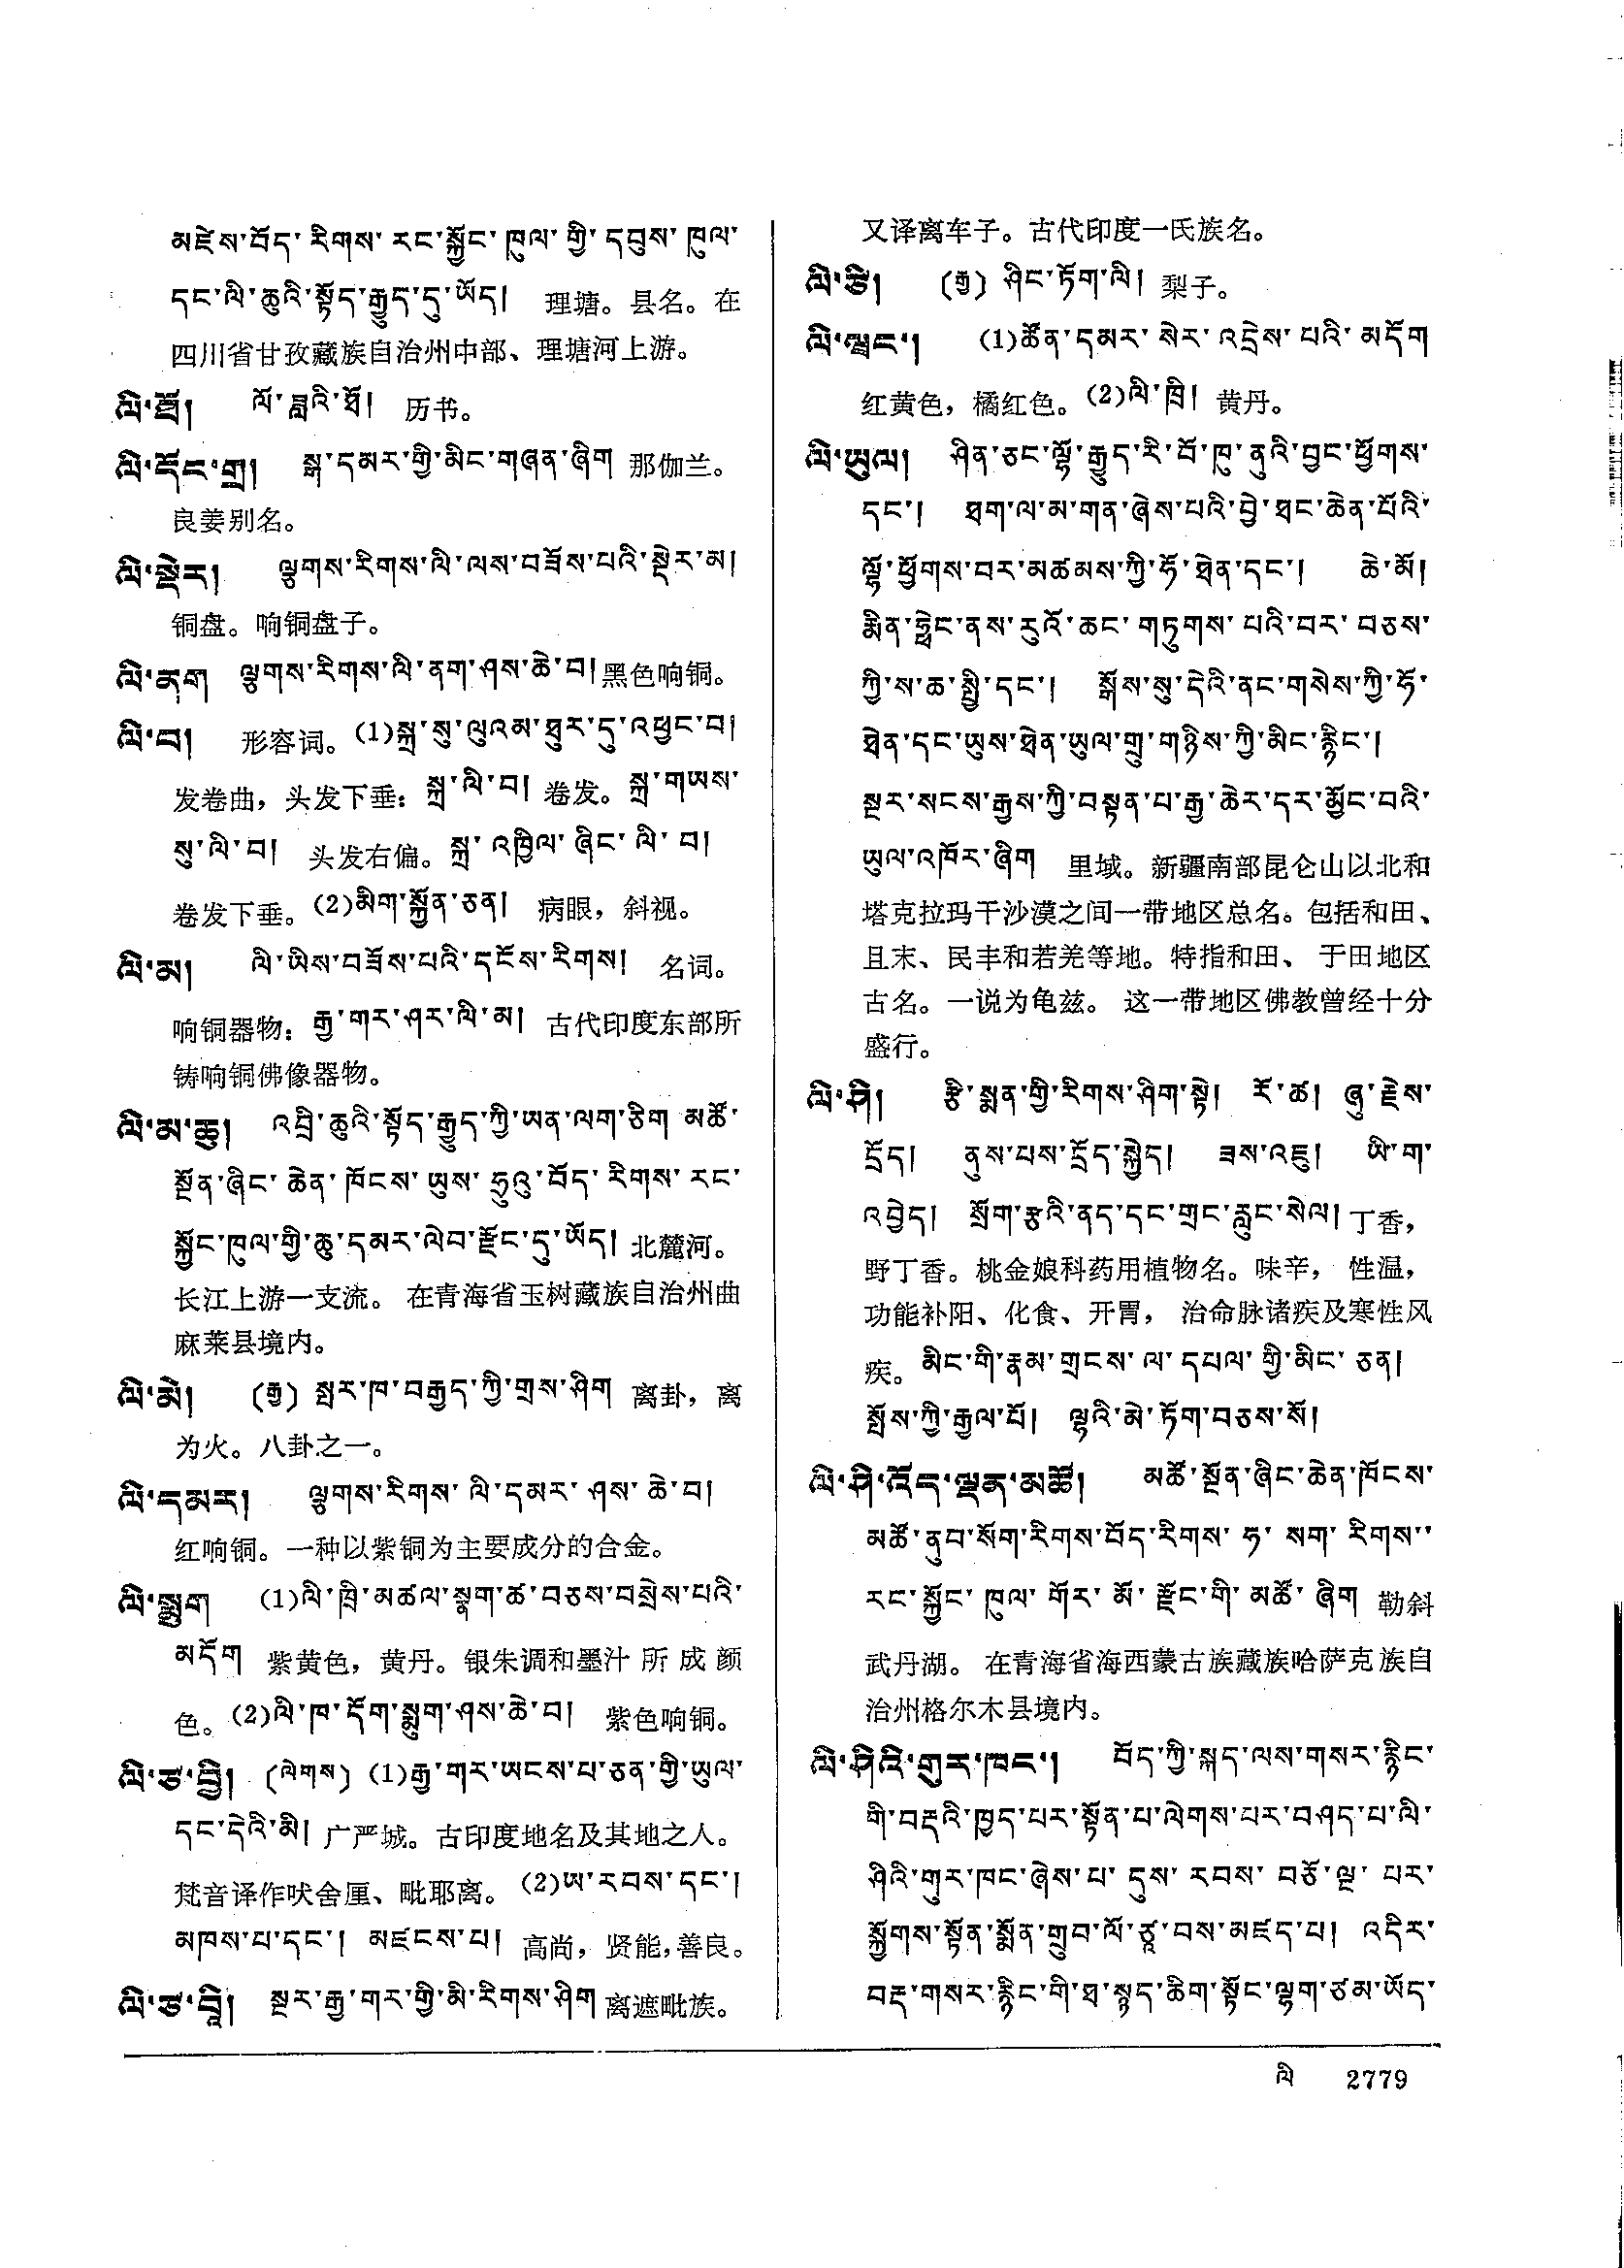 མཛེས་བོད་རིགས་རང་སྐྱོང་ཁུལ་གྱི་དབུས་ཁུལ་
དང་ལི་ཆུའི་སྟོད་རྒྱུད་དུ་ཡོད། 理塘。县名。在
四川省甘孜藏族自治州中部、理塘河上游。
ལི་ཐོ། ལོ་ཟླའི་ཐོ། 历书。
ལི་དོང་གྲ། སྒ་དམར་གྱི་མིང་གཞན་ཞིག 那伽兰。
良姜别名。
ལི་སྡེར། ལྕགས་རིགས་ལི་ལས་བཟོས་པའི་སྡེར་མ།
铜盘。响铜盘子。
ལི་ནག ལྕགས་རིགས་ལི་ནག་ཤས་ཆེ་བ། 黑色响铜。
ལི་བ། 形容词。(1)སྐྲ་སུ་ལུའམ་ཐུར་དུ་འཕྱང་བ།
发卷曲，头发下垂：སྐྲ་ལི་བ། 卷发。སྐྲ་གཡས་
སུ་ལི་བ། 头发右偏。སྐྲ་འཁྱིལ་ཞིང་ལི་བ།
卷发下垂。(2)མིག་སྐྱོན་ཅན། 病眼，斜视。
ལི་མ། ལི་ཡིས་བཟོས་པའི་དངོས་རིགས། 名词。
响铜器物：རྒྱ་གར་ཤར་ལི་མ། 古代印度东部所
铸响铜佛像器物。
ལི་མ་ཆུ། འབྲི་ཆུའི་སྟོད་རྒྱུད་ཀྱི་ཡན་ལག་ཅིག མཚོ་
སྔོན་ཞིང་ཆེན་ཁོངས་ཡུས་ཧྲུའུ་བོད་རིགས་རང་
སྐྱོང་ཁུལ་གྱི་ཆུ་དམར་ལེབ་རྫོང་དུ་ཡོད། 北麓河。
长江上游一支流。 在青海省玉树藏族自治州曲
麻莱县境内。
ལི་མེ། (རྒྱ) སྤར་ཁ་བརྒྱད་ཀྱི་གྲས་ཤིག 离卦，离
为火。八卦之一。
ལི་དམར། ལྕགས་རིགས་ལི་དམར་ཤས་ཆེ་བ།
红响铜。一种以紫铜为主要成分的合金。
ལི་སྨུག (1)ལི་ཁྲི་མཚལ་སྣག་ཚ་བཅས་བསྲེས་པའི་
མདོག 紫黄色，黄丹。银朱调和墨汁所成颜
色。(2)ལི་ཁ་དོག་སྨུག་ཤས་ཆེ་བ། 紫色响铜。
ལི་ཙ་བྱི། (ལེགས) (1)རྒྱ་གར་ཡངས་པ་ཅན་གྱི་ཡུལ་
དང་དེའི་མི། 广严城。古印度地名及其地之人。
梵音译作吠舍厘、毗耶离。(2)ཡ་རབས་དང་།
མཁས་པ་དང་། མཛངས་པ། 高尚，贤能，善良。
ལི་ཙ་བཱི། སྔར་རྒྱ་གར་གྱི་མི་རིགས་ཤིག 离遮毗族。
又译离车子。古代印度一氏族名。
ལི་ཙི། (རྒྱ) ཤིང་ཏོག་ལི། 梨子。
ལི་ལྭང་། (1)ཚོན་དམར་སེར་འདྲེས་པའི་མདོག
红黄色，橘红色。(2)ལི་ཁྲི། 黄丹。
ལི་ཡུལ། ཤིན་ཅང་ལྷོ་རྒྱུད་རི་བོ་ཁུ་ནུའི་བྱང་ཕྱོགས་
དང་། ཐག་ལ་མ་གན་ཞེས་པའི་བྱེ་ཐང་ཆེན་པོའི་
ལྷོ་ཕྱོགས་བར་མཚམས་ཀྱི་ཧོ་ཐེན་དང་། ཆེ་མོ།
མིན་ཧྥེང་ནས་རུའོ་ཆང་གཏུགས་པའི་བར་བཅས་
ཀྱི་ས་ཆ་སྤྱི་དང་། སྒོས་སུ་དེའི་ནང་གསེས་ཀྱི་ཧོ་
ཐེན་དང་ཡུས་ཐེན་ཡུལ་གྲུ་གཉིས་ཀྱི་མིང་རྙིང་།
སྔར་སངས་རྒྱས་ཀྱི་བསྟན་པ་རྒྱ་ཆེར་དར་མྱོང་བའི་
ཡུལ་འཁོར་ཞིག 里域。新疆南部昆仑山以北和
塔克拉玛干沙漠之间一带地区总名。包括和田、
且末、民丰和若羌等地。特指和田、 于田地区
古名。一说为龟兹。 这一带地区佛教曾经十分
盛行。
ལི་ཤི། རྩི་སྨན་གྱི་རིགས་ཤིག་སྟེ། རོ་ཚ། ཞུ་རྗེས་
དྲོད། ནུས་པས་དྲོད་སྐྱེད། ཟས་འཇུ། ཡི་ག་
འབྱེད། སྲོག་རྩའི་ནད་དང་གྲང་རླུང་སེལ། 丁香，
野丁香。桃金娘科药用植物名。味辛， 性温，
功能补阳、化食、开胃， 治命脉诸疾及寒性风
疾。མིང་གི་རྣམ་གྲངས་ལ་དཔལ་གྱི་མིང་ཅན།
སྤོས་ཀྱི་རྒྱལ་པོ། ལྷའི་མེ་ཏོག་བཅས་སོ།
ལི་ཤི་འོད་ལྡན་མཚོ། མཚོ་སྔོན་ཞིང་ཆེན་ཁོངས་
མཚོ་ནུབ་སོག་རིགས་བོད་རིགས་ཧ་སག་རིགས་
རང་སྐྱོང་ཁུལ་གོར་མོ་རྫོང་གི་མཚོ་ཞིག 勒斜
武丹湖。 在青海省海西蒙古族藏族哈萨克族自
治州格尔木县境内。
ལི་ཤིའི་གུར་ཁང་། བོད་ཀྱི་སྐད་ལས་གསར་རྙིང་
གི་བརྡའི་ཁྱད་པར་སྟོན་པ་ལེགས་པར་བཤད་པ་ལི་
ཤིའི་གུར་ཁང་ཞེས་པ་དུས་རབས་བཅོ་ལྔ་པར་
སྐྱོགས་སྟོན་སྨོན་གྲུབ་ལོ་ཙཱ་བས་མཛད་པ། འདིར་
བརྡ་གསར་རྙིང་གི་ཐ་སྙད་ཆིག་སྟོང་ལྷག་ཙམ་ཡོད་
ལི 2779